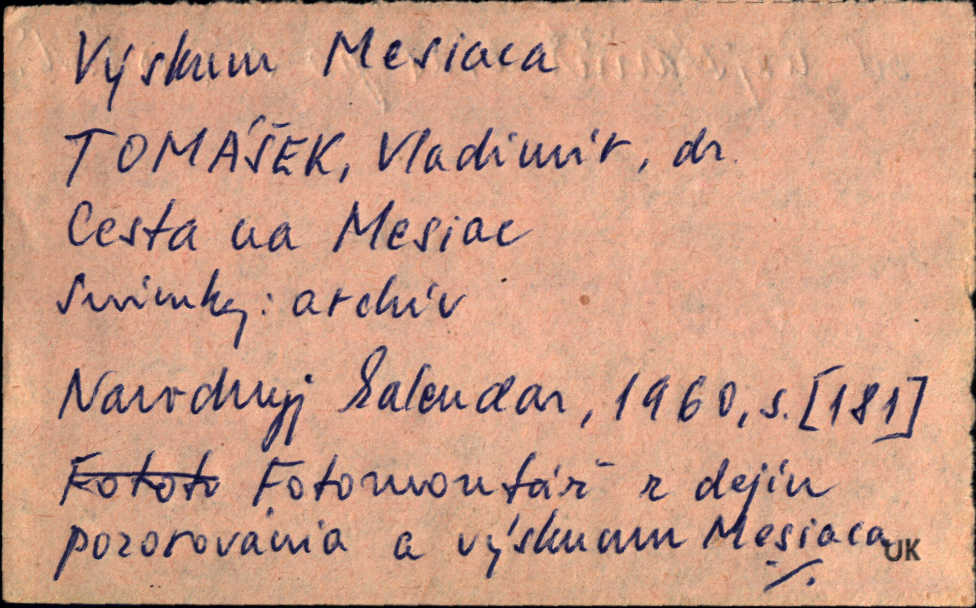 Výskum Mesiaca
TOMÁŠEK, Vladimír, dr.
Cesta na Mesiac
Snímky: archív
Narodnyj Kalendar, 1960, s. [181]
Fototo Fotomontáž z dejín
pozorovánia a výskumu Mesiaca
UK
./.